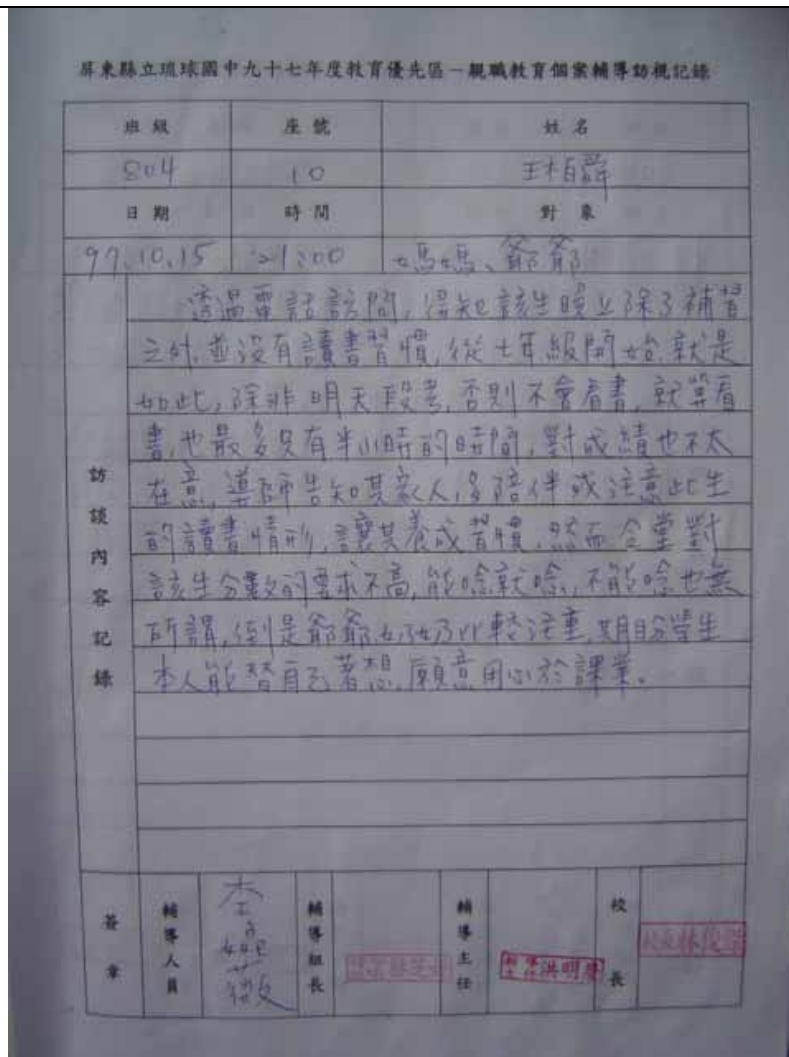 屏東縣立琉球國中九十七年度教育優先區－親職教育個案輔導訪視記錄
班級 座號 姓名
804 10 王柏舜
日期 時間 對象
97.10.15 21:00 媽媽、爺爺
訪談內容記錄
透過電話訪問,得知該生晚上除了補習
之外,並沒有讀書習慣,從七年級開始,就是
如此,除非明天段考,否則不會看書,就算看
書,也最多只有半小時的時間,對成績也不太
在意,導師告知其家人,多陪伴或注意此生
的讀書情形,讓其養成習慣,然而令堂對
該生分數的要求不高,能唸就唸,不能唸也無
所謂,倒是爺爺奶奶比較注重,期盼學生
本人能替自己著想,願意用心於課業。
簽章 輔導人員 李 輔導組長 輔導主任 洪明 校長 校長林俊